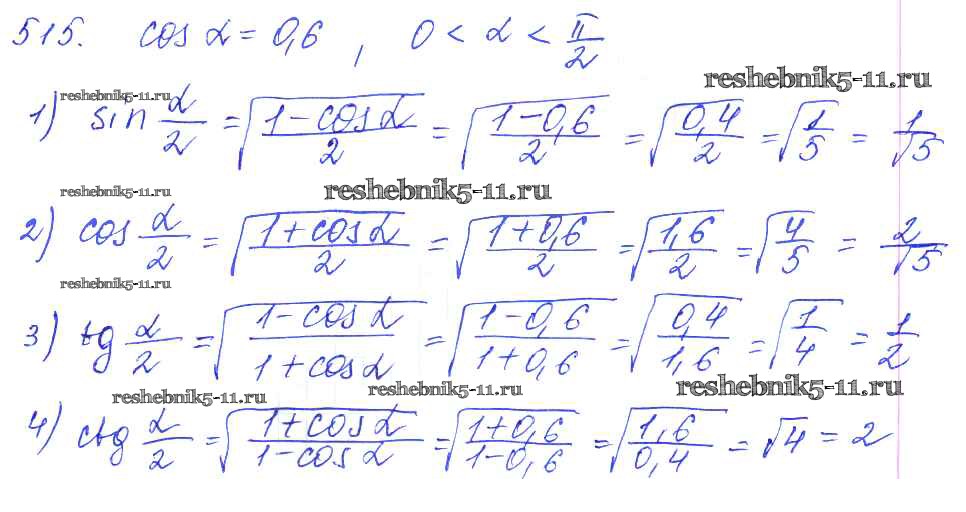 515. cos α = 0,6 , 0 < α < π/2
reshebnik5-11.ru
reshebnik5-11.ru
1) sin α/2 = √((1-cos α)/2) = √((1-0,6)/2) = √(0,4/2) = √(1/5) = 1/√5
reshebnik5-11.ru reshebnik5-11.ru
2) cos α/2 = √((1+cos α)/2) = √((1+0,6)/2) = √(1,6/2) = √(4/5) = 2/√5
reshebnik5-11.ru
3) tg α/2 = √((1-cos α)/(1+cos α)) = √((1-0,6)/(1+0,6)) = √(0,4/1,6) = √(1/4) = 1/2
reshebnik5-11.ru reshebnik5-11.ru reshebnik5-11.ru
4) ctg α/2 = √((1+cos α)/(1-cos α)) = √((1+0,6)/(1-0,6)) = √(1,6/0,4) = √4 = 2